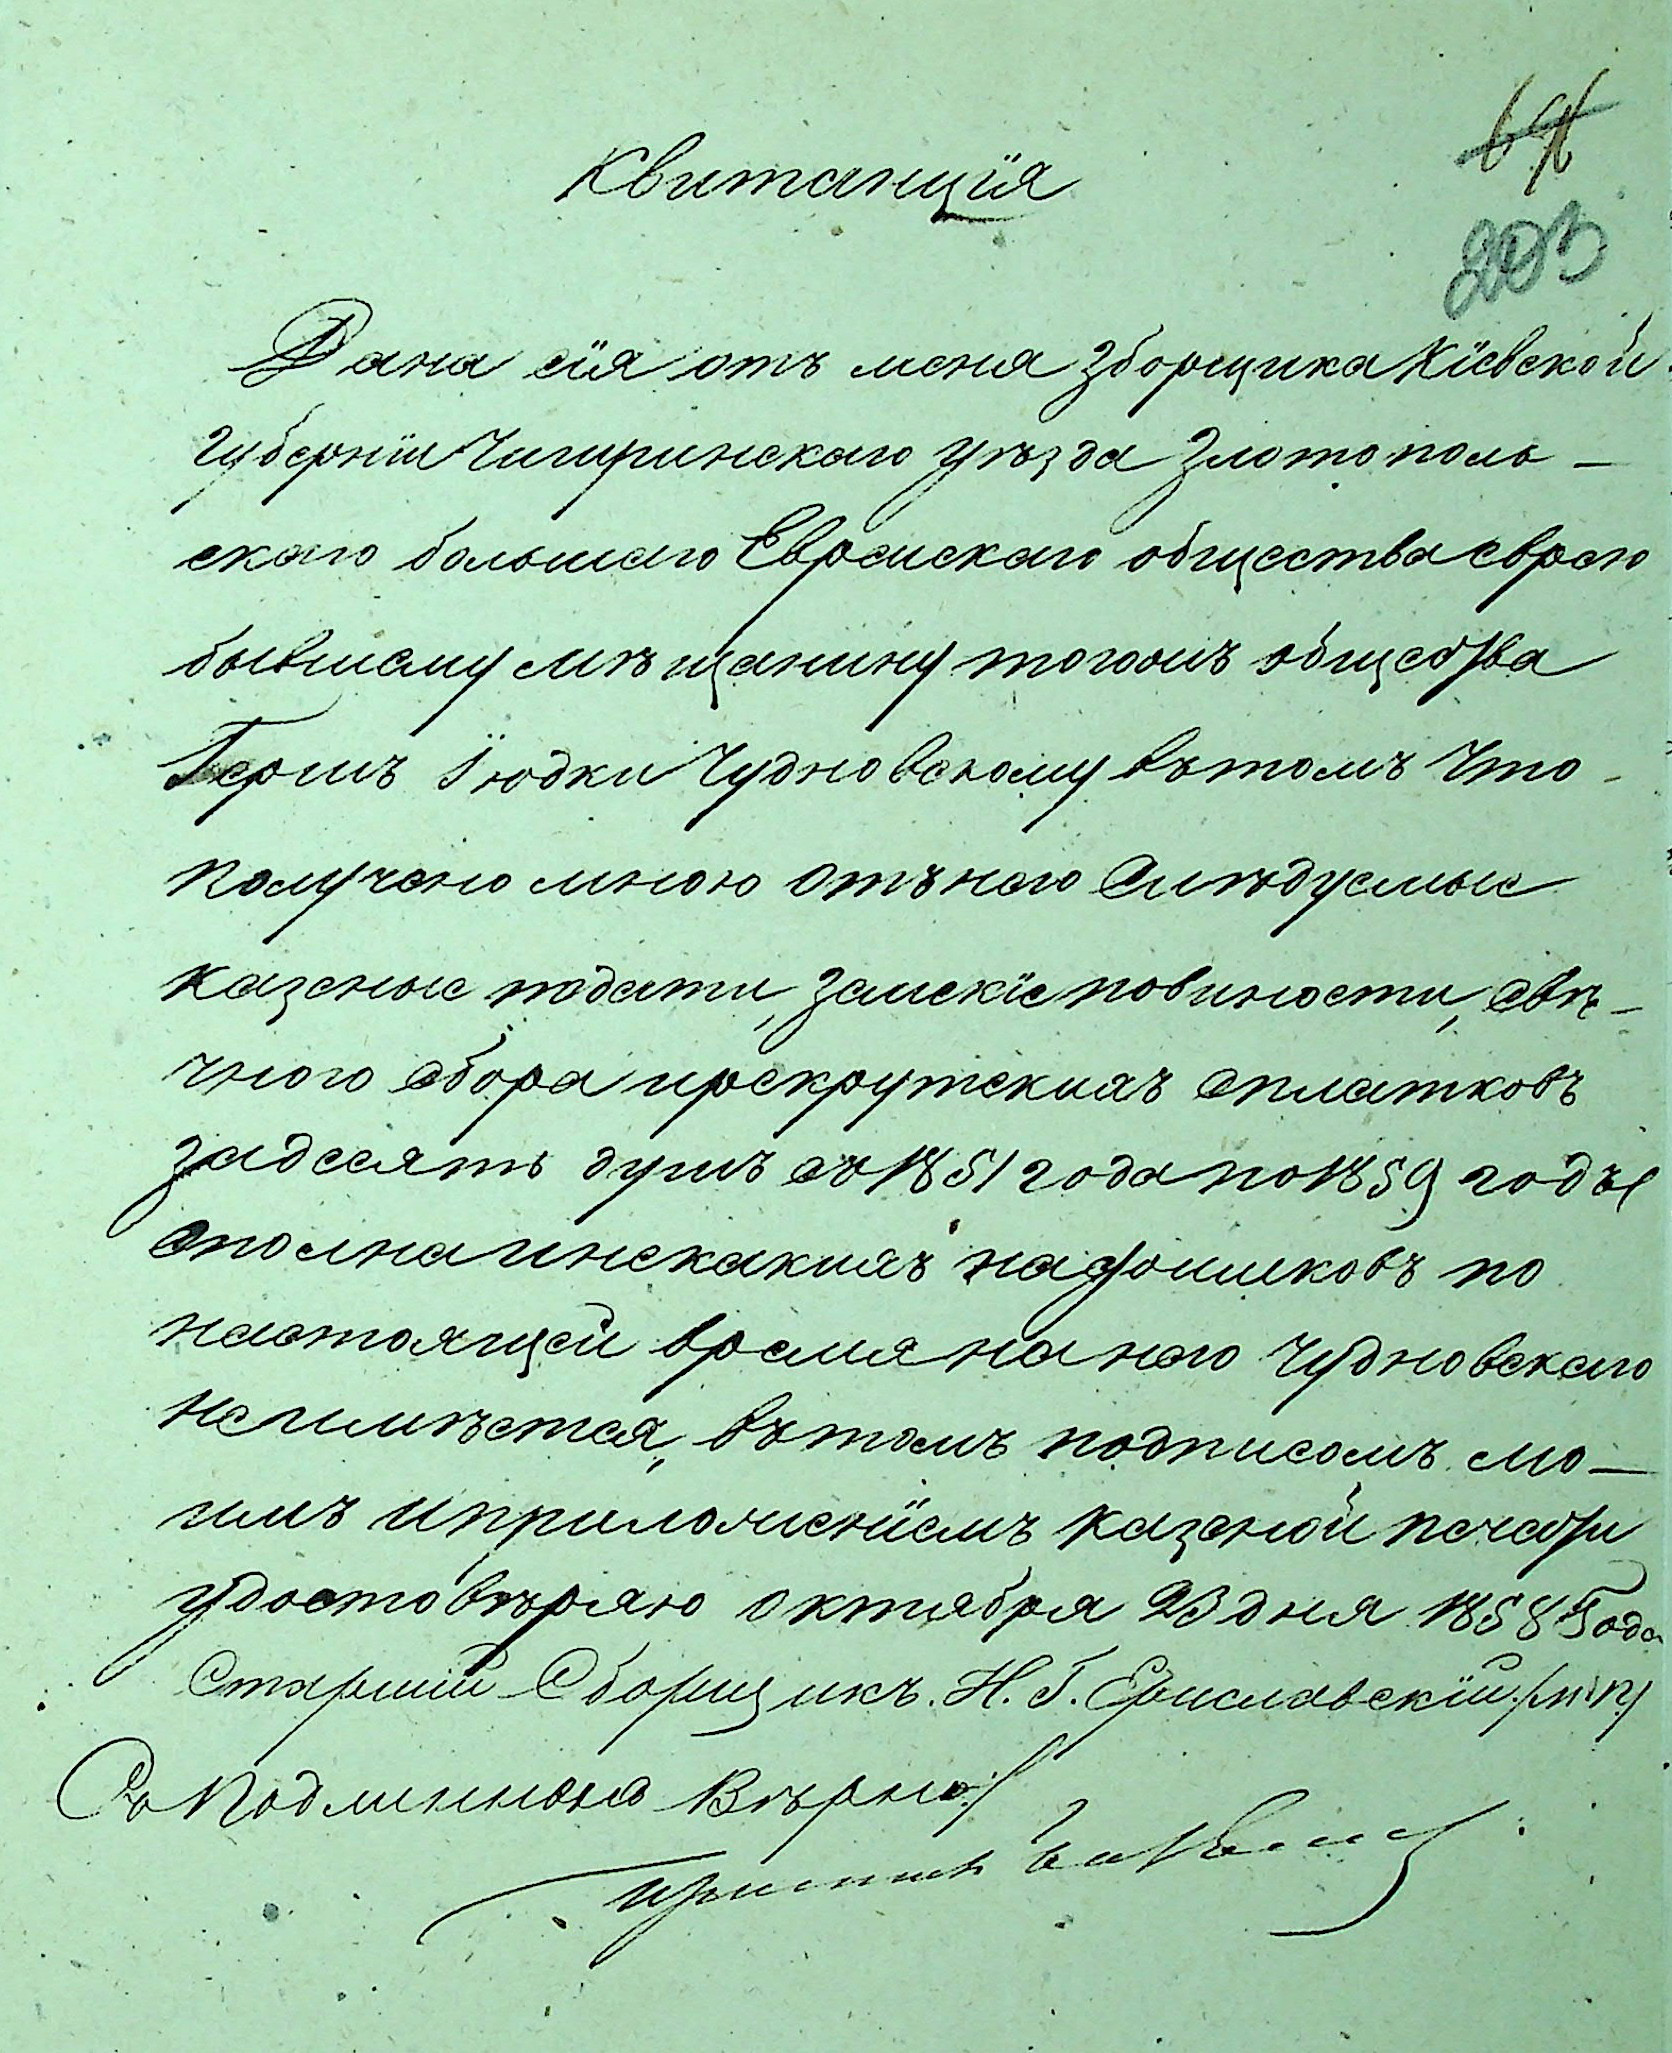 Квитанція
203
Дана сія отъ меня Зборщика Кіевской
губерніи Чигиринскаго уѣзда Златополь-
скаго большаго Еврейскаго общества еврею
бывшему мѣщанину тогожъ общества
Гершъ Іюдки Чудновскому вътомъ что
получено мною отънего Слѣдуемые
казеные подати, земскіе повиности, свѣ-
чного сбора ирекрутскихъ сплатковъ
задесять душъ съ 1851 года по 1859 годъ
сполна инекакихъ по
настоящей время нанего Чудновскаго
неимѣется, вътомъ подписомъ мо-
имъ иприложеніемъ казеной печати
удостовѣряю октября 23 дня 1858 Года
Старшій Сборщикъ. Н. Г. (мп)
Съ Подлинною Вѣрно: